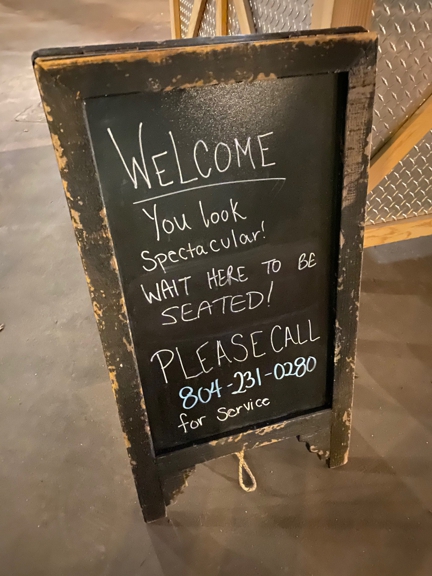 WELCOME
You look
Spectacular!
WAIT HERE TO BE
SEATED!
PLEASE CALL
804-231-0280
for Service